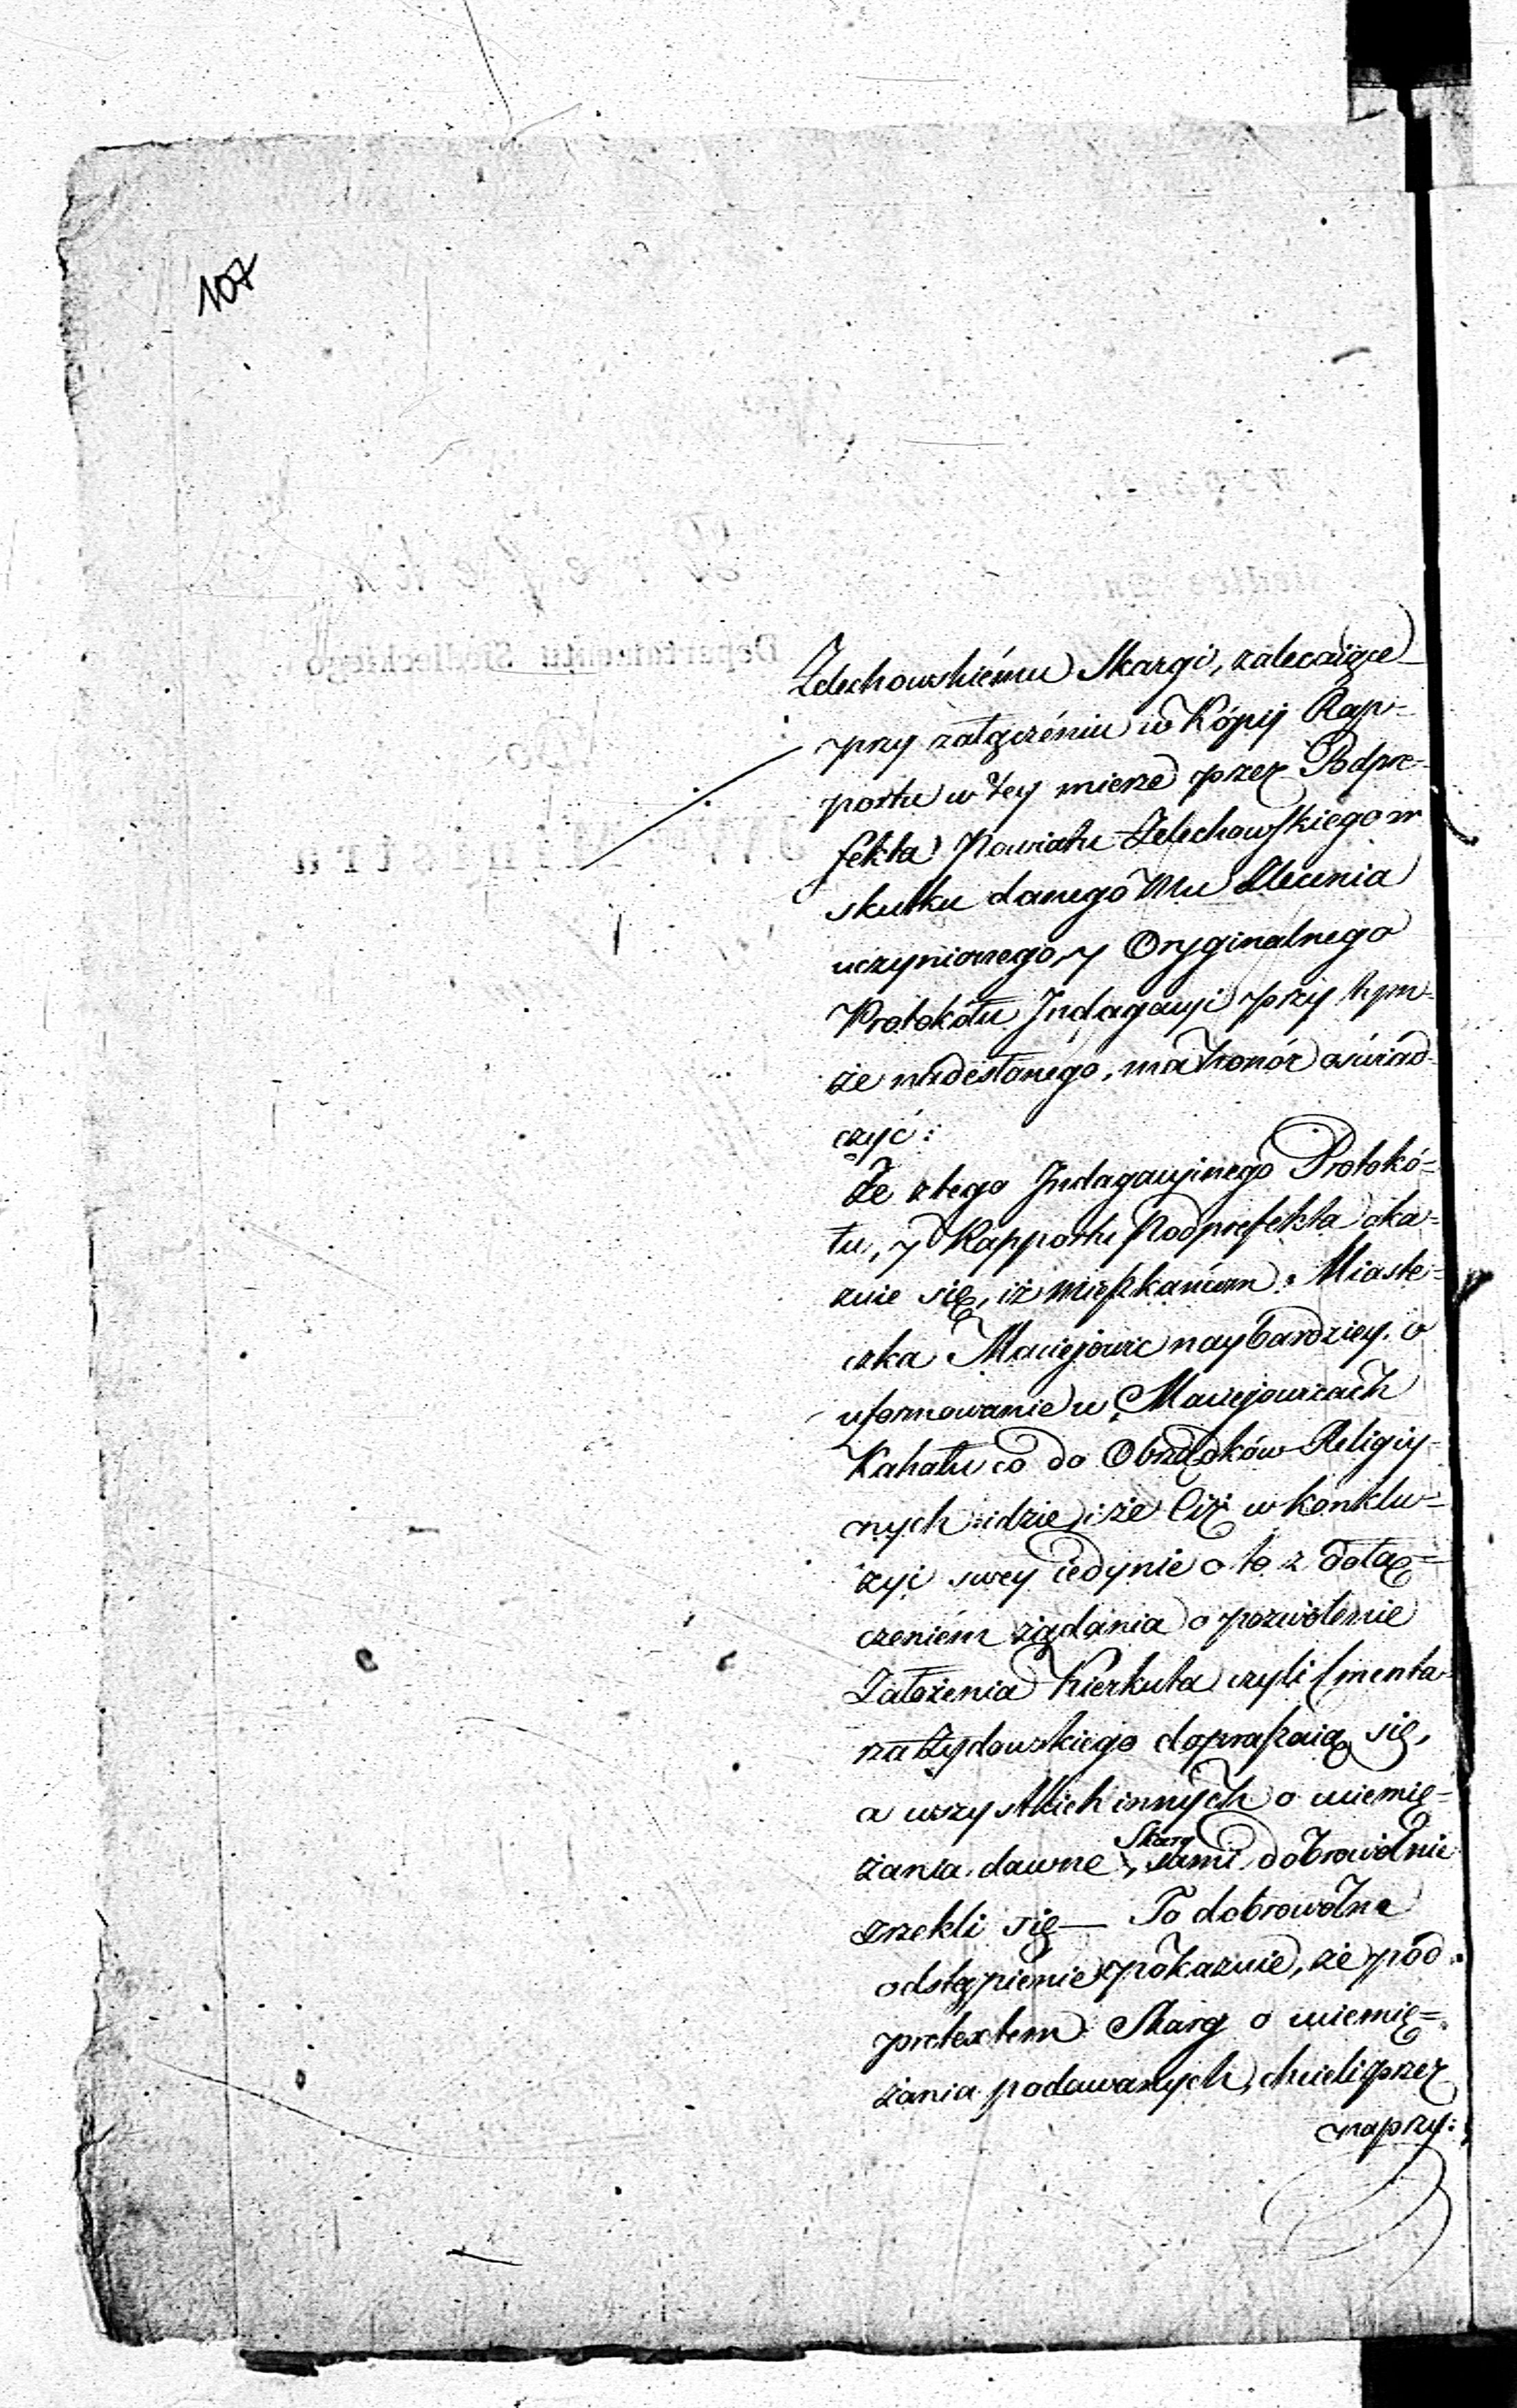 107
Żelechowskiému Skargi, zalecaiące
przy załączéniu w Kópij Rap-
portu w tey mierze przez Podpre-
fekta Powiatu Żelechowskiego w
skutku danego Mu Zlecenia
uczynionego, y Oryginalnego
Protokółu Indagacyi przy tym-
że nadesłanégo, ma honór oświad-
czyć:
Że z tego Indagacyinego Protokó-
łu, y Rapportu Podprefekta oka-
zuie się, iż Mieszkańcom Miaste-
czka Maciejowic naybardziey o
uformowanie w Maciejowicach
Kahału co do Obrządków Religiy-
nych idzie, i że Ciż w konklu-
zyi swey iedynie o to z dołą-
czeniém żądania o pozwolenie
Założenia Kierkuta czyli Smenta-
rza Żydowskiego dopraszaią się,
a wszystkich innych o uciemię-
żania dawne Skarg sami dobrowolnie
zrzekli się — To dobrowolne
odstąpienie pokazuie, że pod
pretextem Skarg o uciemię-
żania podawanych, chcieli przez
naprzy:
Departamentu Siedleckiego